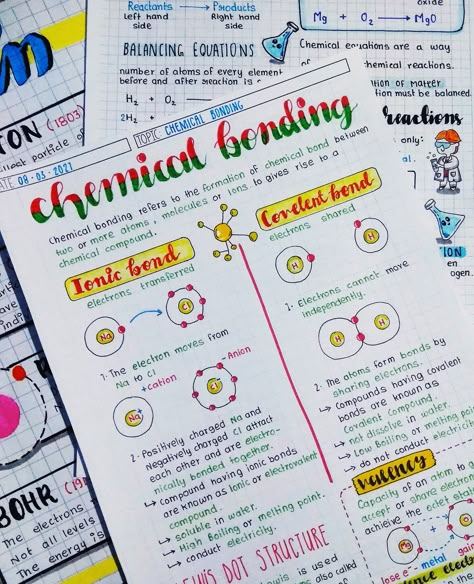 Reactants → Products
Left hand side
Right hand side
BALANCING EQUATIONS
number of atoms of every element
before and after reaction is
H₂ + O₂
2H₂ +
oxide
Mg + O₂ → MgO
Chemical equations are a way
of
chemical reactions.
of matter
must be balanced.
reactions
only:
ION
en
ogen
TON (1803)
particle of
DATE 08-05-2021
TOPIC CHEMICAL BONDING
chemical bonding
Chemical bonding refers to the formation of chemical bond between
two or more atoms, molecules or ions to gives rise to a
chemical compound.
Ionic bond
electrons transferred
Na
Cl
1· The electron moves from
Na to Cl
+cation
-Anion
Na+
Cl-
2· Positively charged Na and
Negatively charged Cl attract
each other and are electro-
nically bonded together.
↳ compound having ionic bonds
are known as Ionic or electrovalent
compound.
↳ soluble in water.
↳ High Boiling or melting point.
↳ conduct electricity.
Covelent bond
electrons shared
H
H
1· Electrons cannot move
independently.
H
H
2· The atoms form bonds by
sharing electrons.
↳ Compounds having covalent
bonds are known as
Covalent Compound.
↳ not dissolve in water.
↳ Low Boiling or melting
↳ do not conduct electricity
Valency
Capacity of an atom to
accept or share electrons
achieve the octet
Mg
lose e⁻
metal
DOT STRUCTURE
is used
also called
BOHR (19
The electrons
Not all levels
The energy is